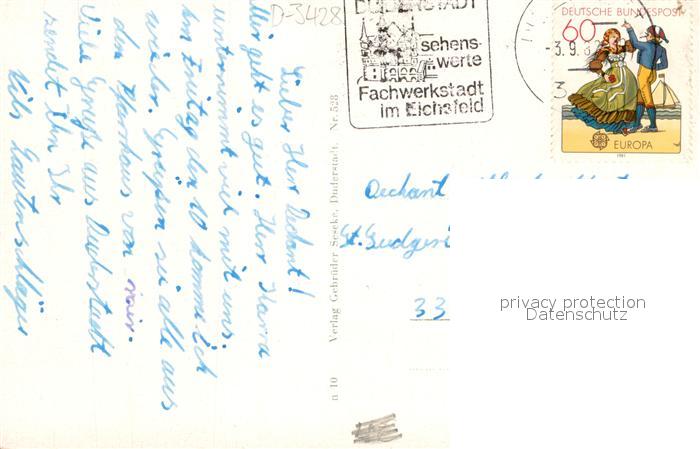 D-3428
Lieber Herr Dechant!
Mir geht es gut. Herr
unternimmt viel mit uns.
Am Freitag den 10 komme ich
wieder. Grüßen sie alle aus
dem Pfarrhaus von mir.
Viele Grüße aus Duderstadt
sendet Ihn Ihr
Nils Lautenschläger
n 10 Verlag Gebrüder Seseke, Duderstadt. Nr. 528
DUDERSTADT
sehens-
werte
Fachwerkstadt
im Eichsfeld
-3.9.8
3
DEUTSCHE BUNDESPOST
60
EUROPA
1981
Dechant
St.
33
privacy protection
Datenschutz